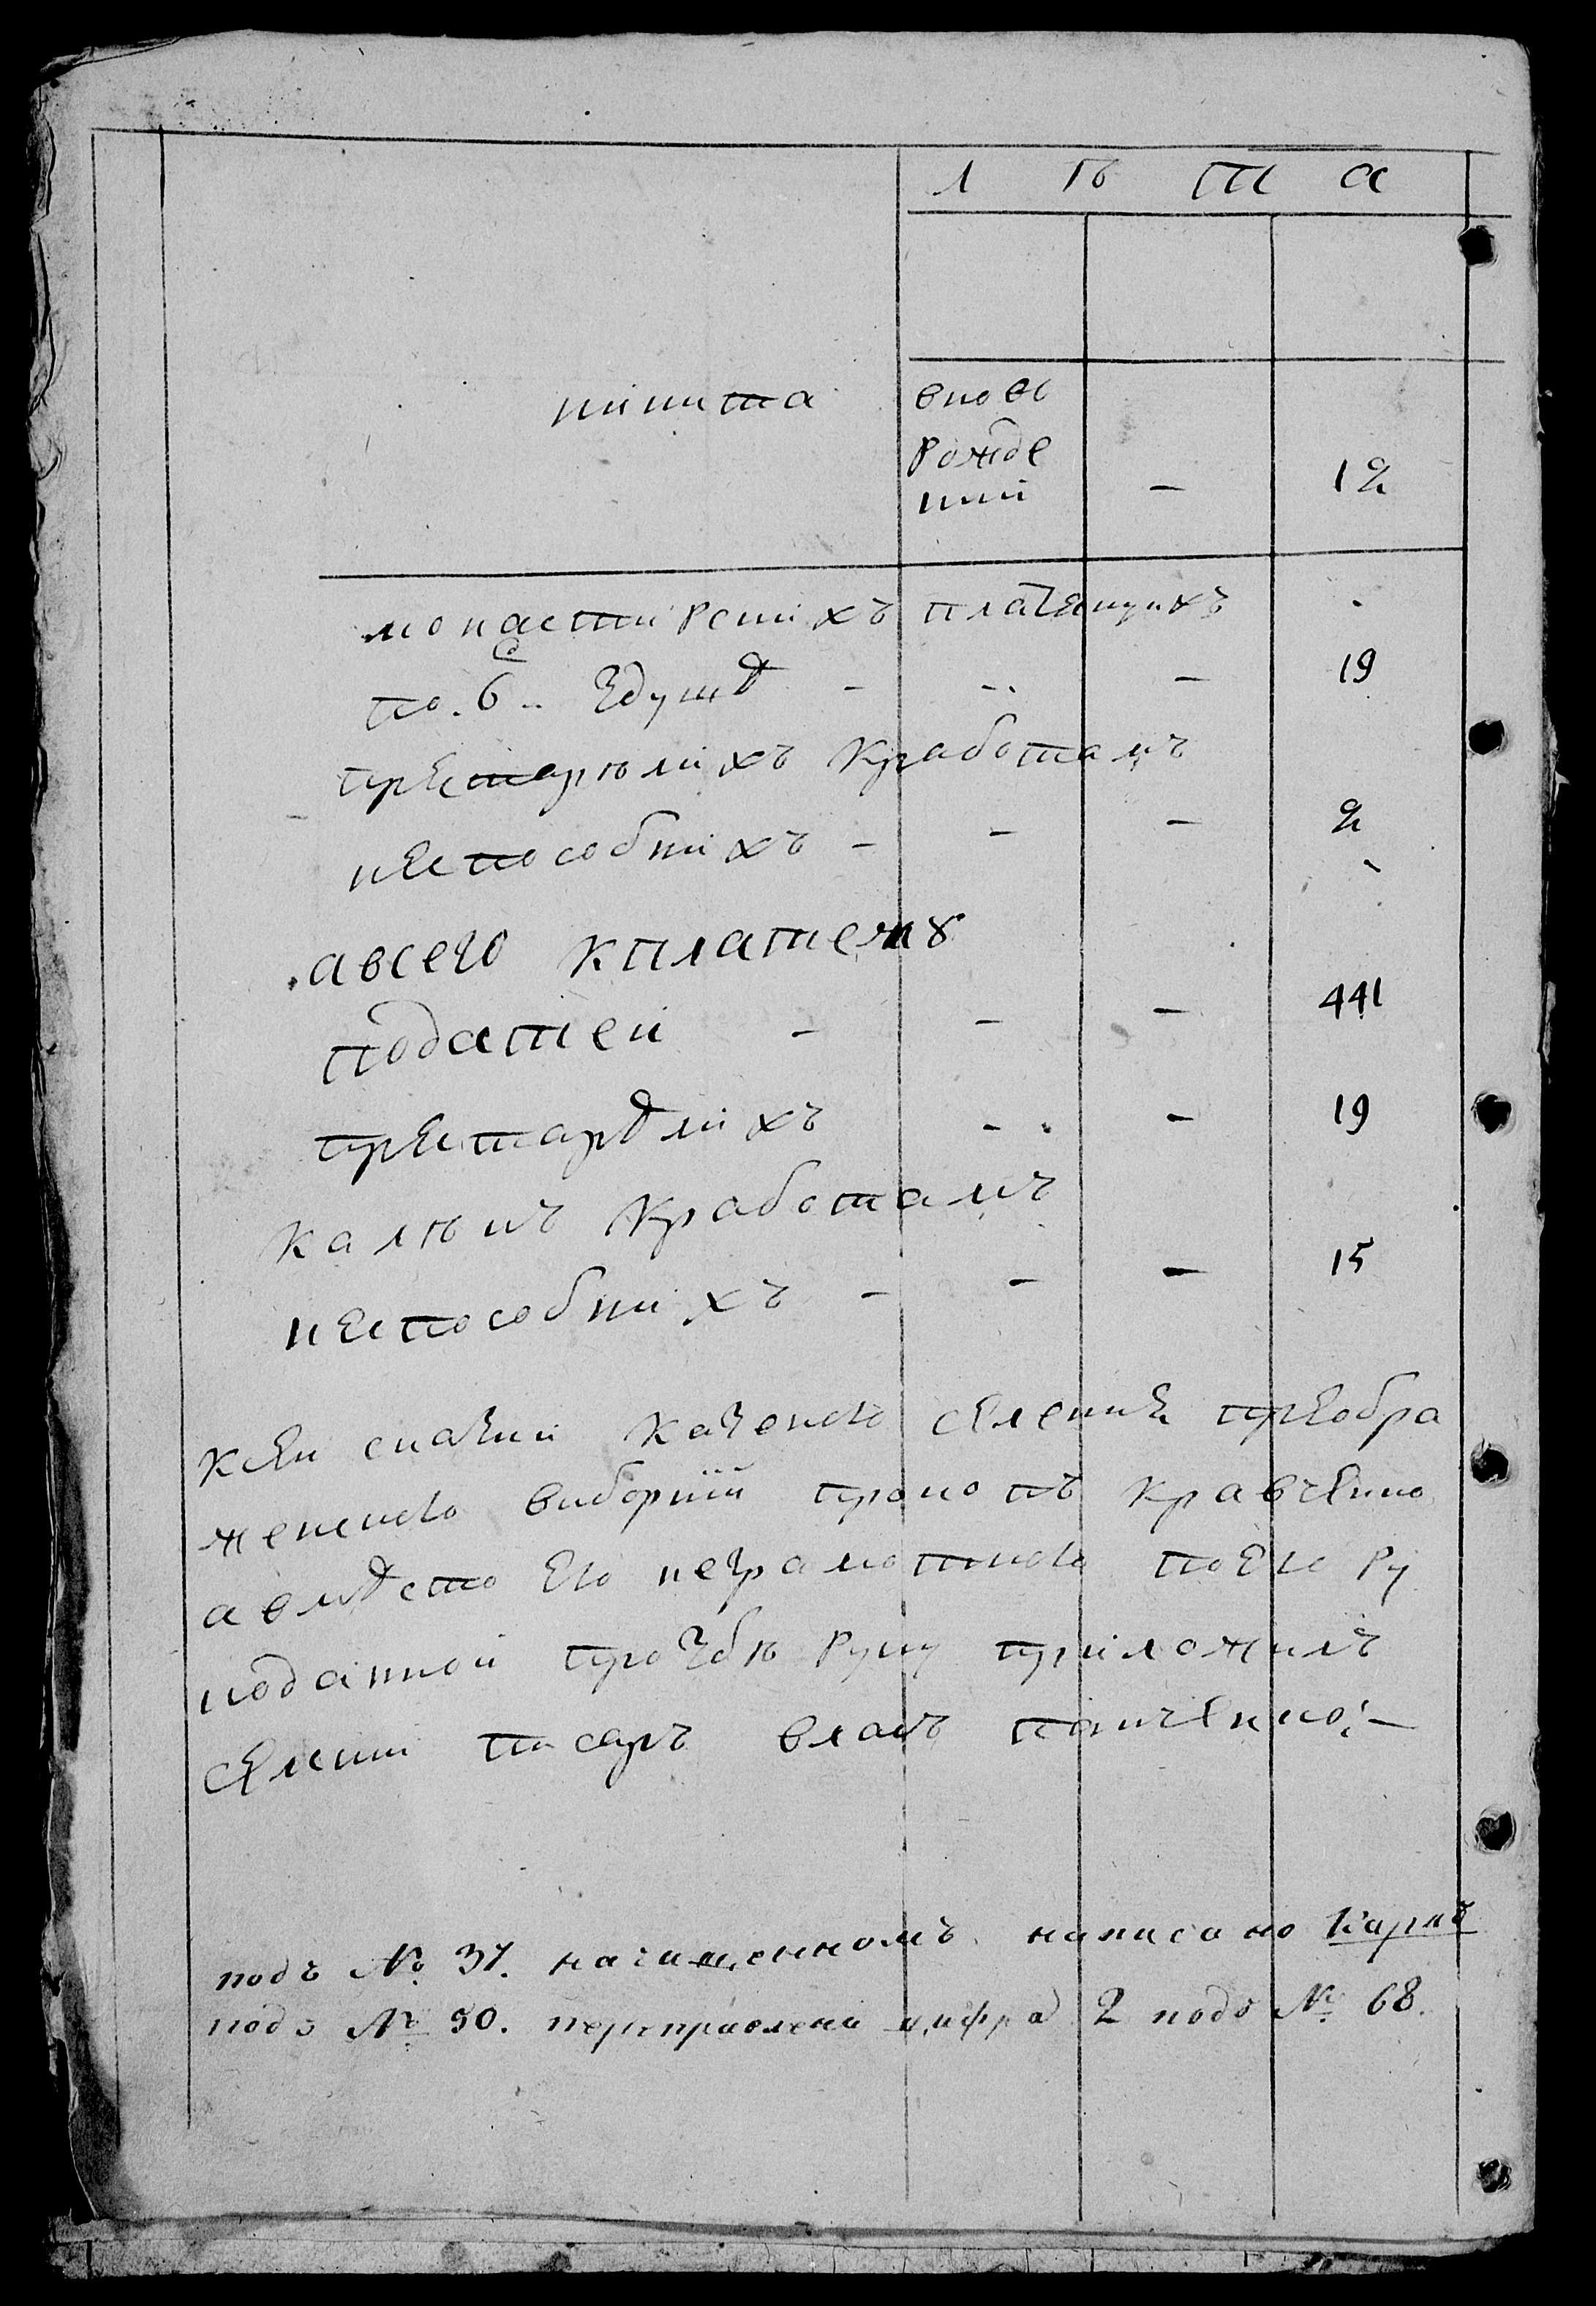 лѣта
никита вновь
рожде
ний — 12
монастирскихъ платящихъ
по. 6 .. здушѣ — — — 19
престарѣлихъ кработамъ
неспособнихъ — — — 2
авсего кплатежу
податей — — — 441
престарѣлихъ — — 19
калѣкъ кработамъ
неспособнихъ — — — 15
ксей сказки казеного селения преобра
женского виборний прокопъ кравченко
авмѣсто его неграмотного поего ру
коданной прозбѣ руку приложилъ
селский писаръ власъ панченко:—
подъ № 37. начищенномъ написано Карпъ
подъ № 50. переправлена цифра 2 подъ № 68.